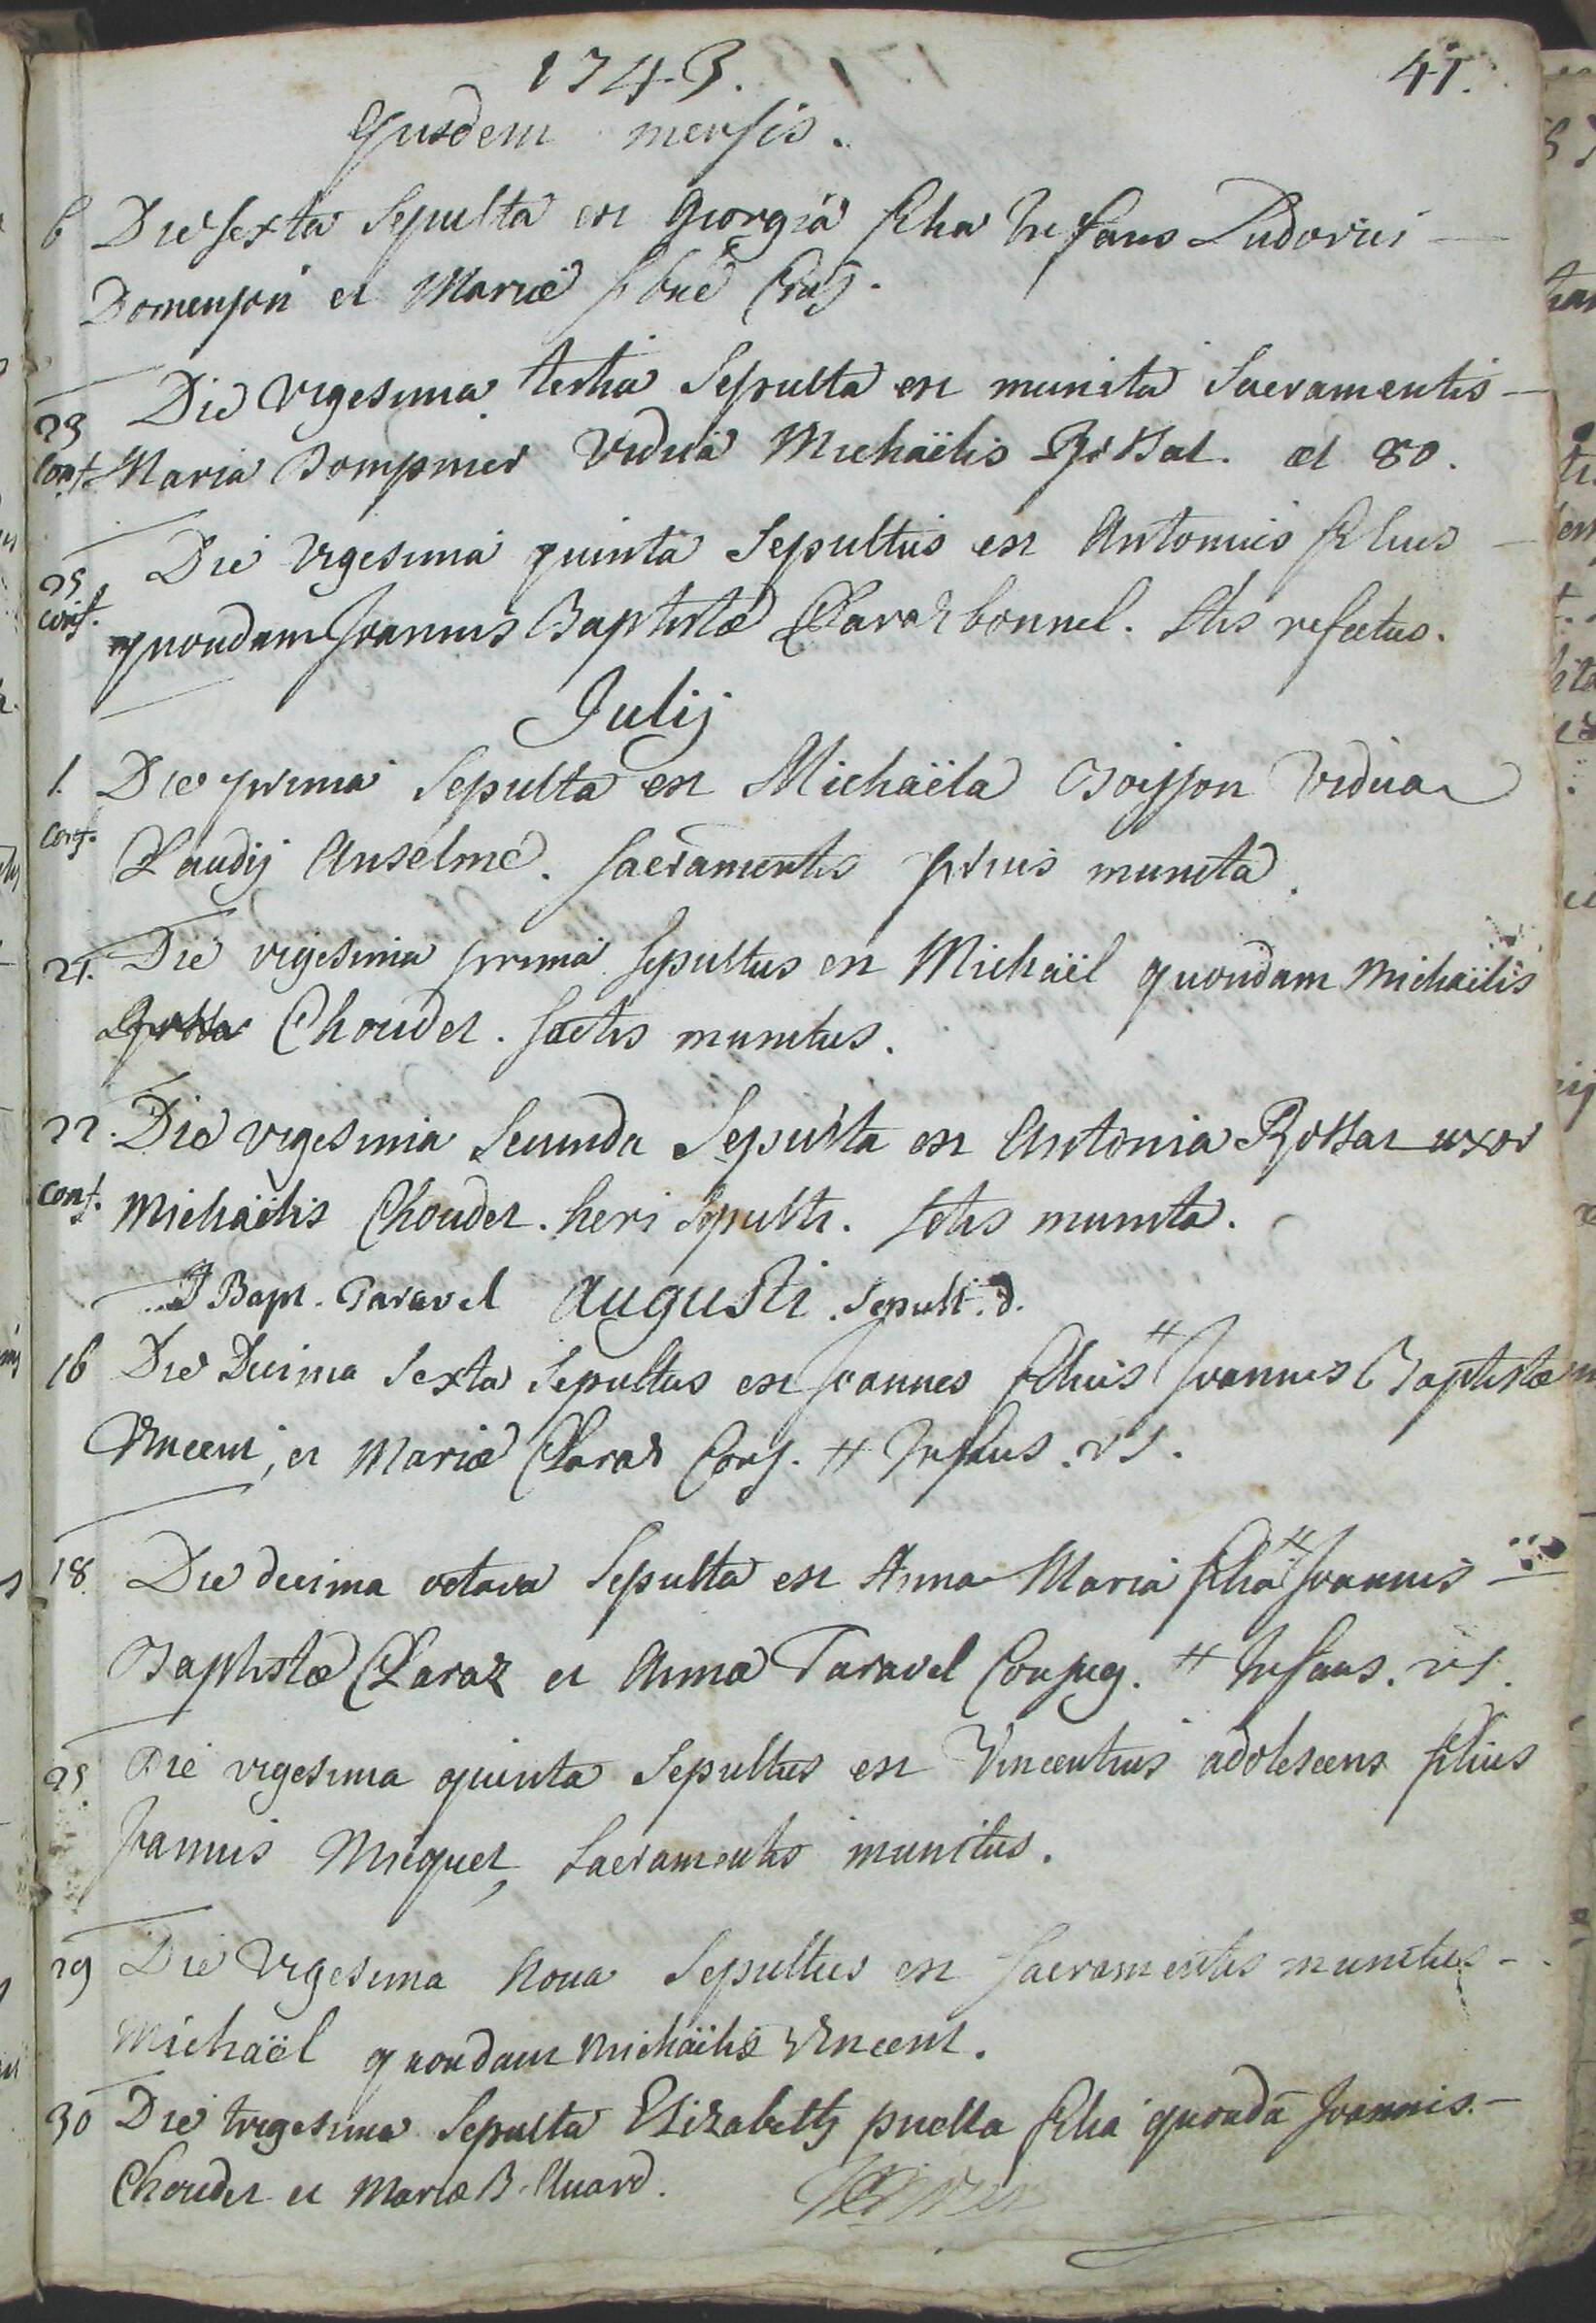 1743. 41.
Ejusdem mensis.
6 Die sexta Sepulta est Georgia filia Infans Ludovici
Domenjon et Mariæ Conj.
23 Die vigesima tertia Sepulta est munita Sacramentis
conf. Maria Dompnier vidua Michaëlis Rostat. æt 80.
25 Die vigesima quinta Sepultus est Antonius filius
conf. quondam Joannis Baptistæ Claraz bonnel. Stis refectus.
Julij
1. Die prima Sepulta est Michaëla Boisson vidua
conf. Claudij Anselme. Sacramentis prius munita.
21. Die vigesima prima Sepultus est Michaël quondam Michaëlis
Choudet. sactis munitus.
22. Die vigesima secunda Sepulta est Antonia Rostat uxor
conf. Michaëlis Choudet. heri Sepulti. Sctis munita.
J Bapt. Taravel Augusti. Sepult. d.
16 Die Decima Sexta Sepultus est Joannes filius # Joannis Baptistæ
Vincent, et Mariæ Claraz Conj. # Infans. vs.
18. Die decima octava Sepulta est Anna Maria filia # Joannis
Baptistæ Claraz et Annæ Taravel Conjug. # Infans. vs.
25 Die vigesima quinta Sepultus est Vincentius adolescens filius
Joannis Miquet, Sacramentis munitus.
29 Die vigesima nona Sepultus est sacramentis munitus
Michaël quondam Michaëlis Vincent.
30 Die trigesima Sepulta Elizabeth puella filia quondã Joannis
Choudet et Mariæ B. Cluard.